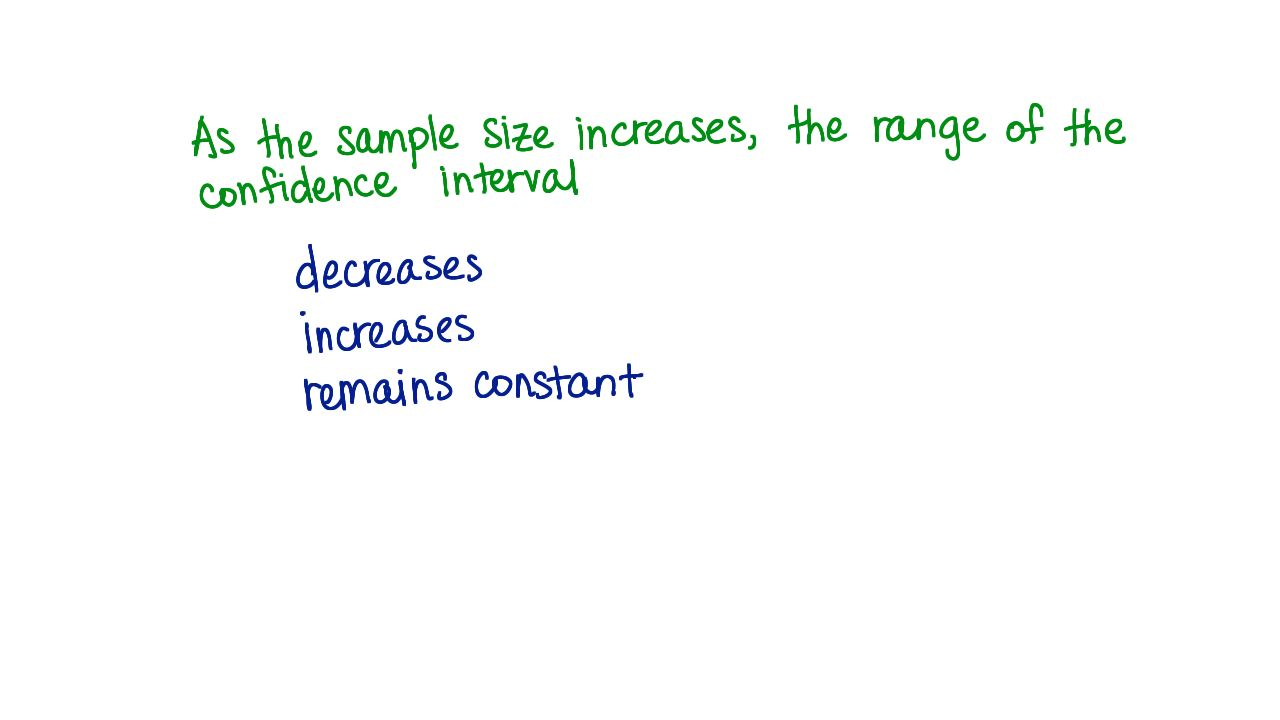 As the sample size increases, the range of the
confidence interval
decreases
increases
remains constant